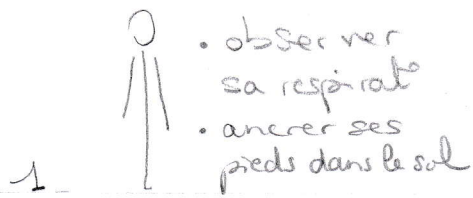 • observer
sa respirat°
• ancrer ses
pieds dans le sol
1